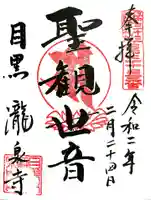 奉拝
令和二年
二月二十四日
聖観世音
目黒 瀧泉寺